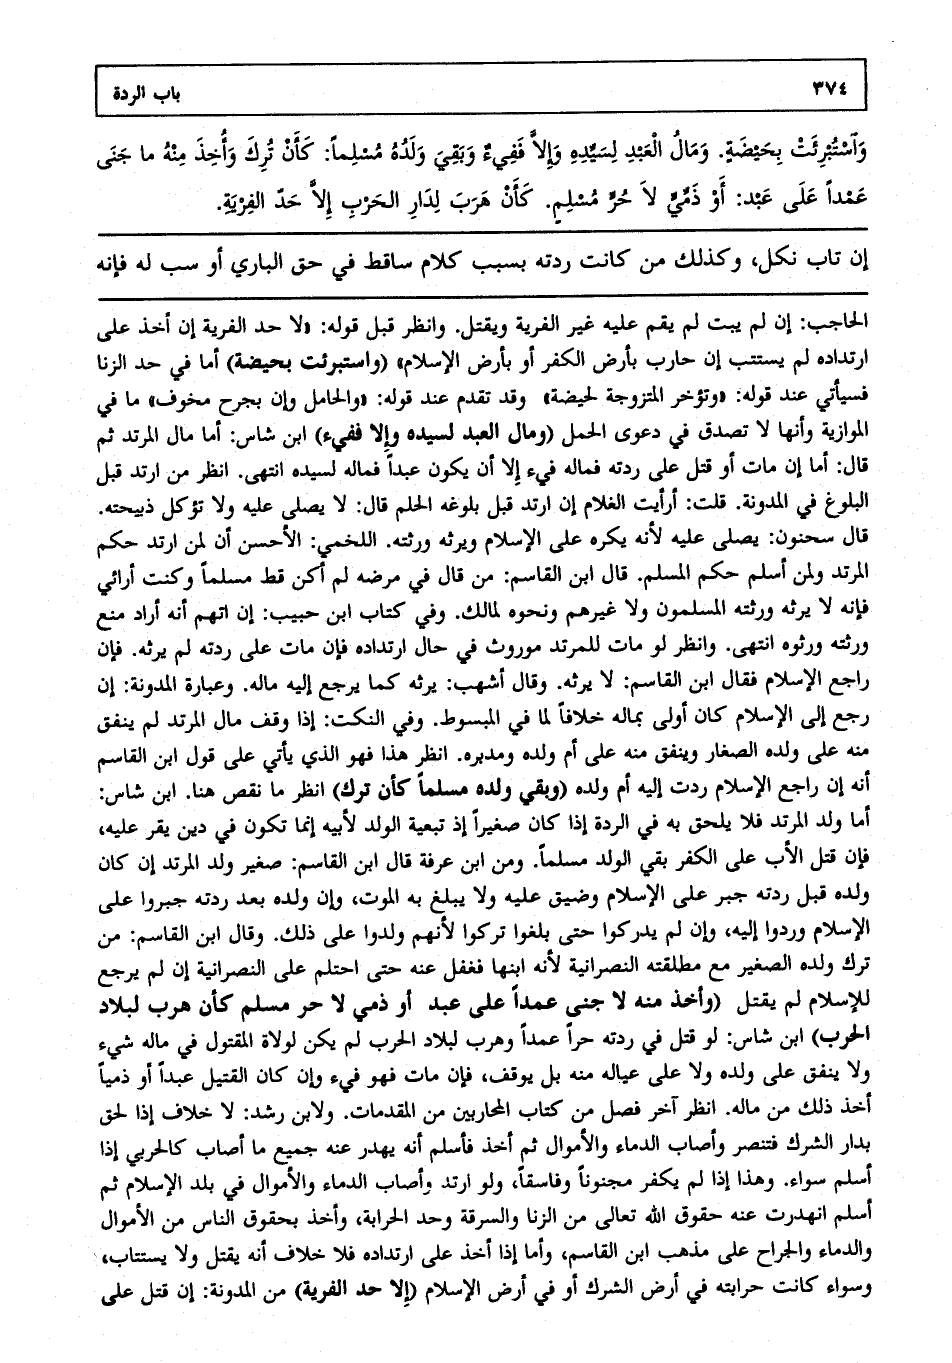 ٣٧٤
باب الردة
وَٱسْتُبْرِئَتْ بِحَيْضَةٍ. وَمَالُ الْعَبْدِ لِسَيِّدِهِ وَإِلاَّ فَفَيءٌ وَبَقِيَ وَلَدُهُ مُسْلِماً: كَأَنْ تُرِكَ وَأُخِذَ مِنْهُ ما جَنَى
عَمْداً عَلَى عَبْد: أَوْ ذَمِّيٍّ لاَ حُرٍّ مُسْلِمٍ. كَأَنْ هَرَبَ لِدَارِ الحَرْبِ إِلاَّ حَدّ الفِرْيَةِ.
إن تاب نكل، وكذلك من كانت ردته بسبب كلام ساقط في حق الباري أو سب له فإنه
الحاجب: إن لم يبت لم يقم عليه غير الفرية ويقتل. وانظر قبل قوله: «لا حد الفرية إن أخذ على
ارتداده لم يستتب إن حارب بأرض الكفر أو بأرض الإسلام» (واستبرئت بحيضة) أما في حد الزنا
فسيأتي عند قوله: «وتؤخر المتزوجة لحيضة» وقد تقدم عند قوله: «والحامل وإن بجرح مخوف» ما في
الموازية وأنها لا تصدق في دعوى الحمل (ومال العبد لسيده وإلا ففيء) ابن شاس: أما مال المرتد ثم
قال: أما إن مات أو قتل على ردته فماله فيء إلا أن يكون عبداً فماله لسيده انتهى. انظر من ارتد قبل
البلوغ في المدونة. قلت: أرأيت الغلام إن ارتد قبل بلوغه الحلم قال: لا يصلى عليه ولا تؤكل ذبيحته.
قال سحنون: يصلى عليه لأنه يكره على الإسلام ويرثه ورثته. اللخمي: الأحسن أن لمن ارتد حكم
المرتد ولمن أسلم حكم المسلم. قال ابن القاسم: من قال في مرضه لم أكن قط مسلماً وكنت أرائي
فإنه لا يرثه ورثته المسلمون ولا غيرهم ونحوه لمالك. وفي كتاب ابن حبيب: إن اتهم أنه أراد منع
ورثته ورثوه انتهى. وانظر لو مات للمرتد موروث في حال ارتداده فإن مات على ردته لم يرثه. فإن
راجع الإسلام فقال ابن القاسم: لا يرثه. وقال أشهب: يرثه كما يرجع إليه ماله. وعبارة المدونة: إن
رجع إلى الإسلام كان أولى بماله خلافاً لما في المبسوط. وفي النكت: إذا وقف مال المرتد لم ينفق
منه على ولده الصغار وينفق منه على أم ولده ومدبره. انظر هذا فهو الذي يأتي على قول ابن القاسم
أنه إن راجع الإسلام ردت إليه أم ولده (وبقي ولده مسلماً كأن ترك) انظر ما نقص هنا. ابن شاس:
أما ولد المرتد فلا يلحق به في الردة إذا كان صغيراً إذ تبعية الولد لأبيه إنما تكون في دين يقر عليه،
فإن قتل الأب على الكفر بقي الولد مسلماً. ومن ابن عرفة قال ابن القاسم: صغير ولد المرتد إن كان
ولده قبل ردته جبر على الإسلام وضيق عليه ولا يبلغ به الموت، وإن ولده بعد ردته جبروا على
الإسلام وردوا إليه، وإن لم يدركوا حتى بلغوا تركوا لأنهم ولدوا على ذلك. وقال ابن القاسم: من
ترك ولده الصغير مع مطلقته النصرانية لأنه ابنها فغفل عنه حتى احتلم على النصرانية إن لم يرجع
للإسلام لم يقتل (وأخذ منه لا جنى عمداً على عبد أو ذمي لا حر مسلم كأن هرب لبلاد
الحرب) ابن شاس: لو قتل في ردته حراً عمداً وهرب لبلاد الحرب لم يكن لولاة المقتول في ماله شيء
ولا ينفق على ولده ولا على عياله منه بل يوقف، فإن مات فهو فيء وإن كان القتيل عبداً أو ذمياً
أخذ ذلك من ماله. انظر آخر فصل من كتاب المحاربين من المقدمات. ولابن رشد: لا خلاف إذا لحق
بدار الشرك فتنصر وأصاب الدماء والأموال ثم أخذ فأسلم أنه يهدر عنه جميع ما أصاب كالحربي إذا
أسلم سواء. وهذا إذا لم يكفر مجنوناً وفاسقاً، ولو ارتد وأصاب الدماء والأموال في بلد الإسلام ثم
أسلم انهدرت عنه حقوق الله تعالى من الزنا والسرقة وحد الحرابة، وأخذ بحقوق الناس من الأموال
والدماء والجراح على مذهب ابن القاسم، وأما إذا أخذ على ارتداده فلا خلاف أنه يقتل ولا يستتاب،
وسواء كانت حرابته في أرض الشرك أو في أرض الإسلام (إلا حد الفرية) من المدونة: إن قتل على